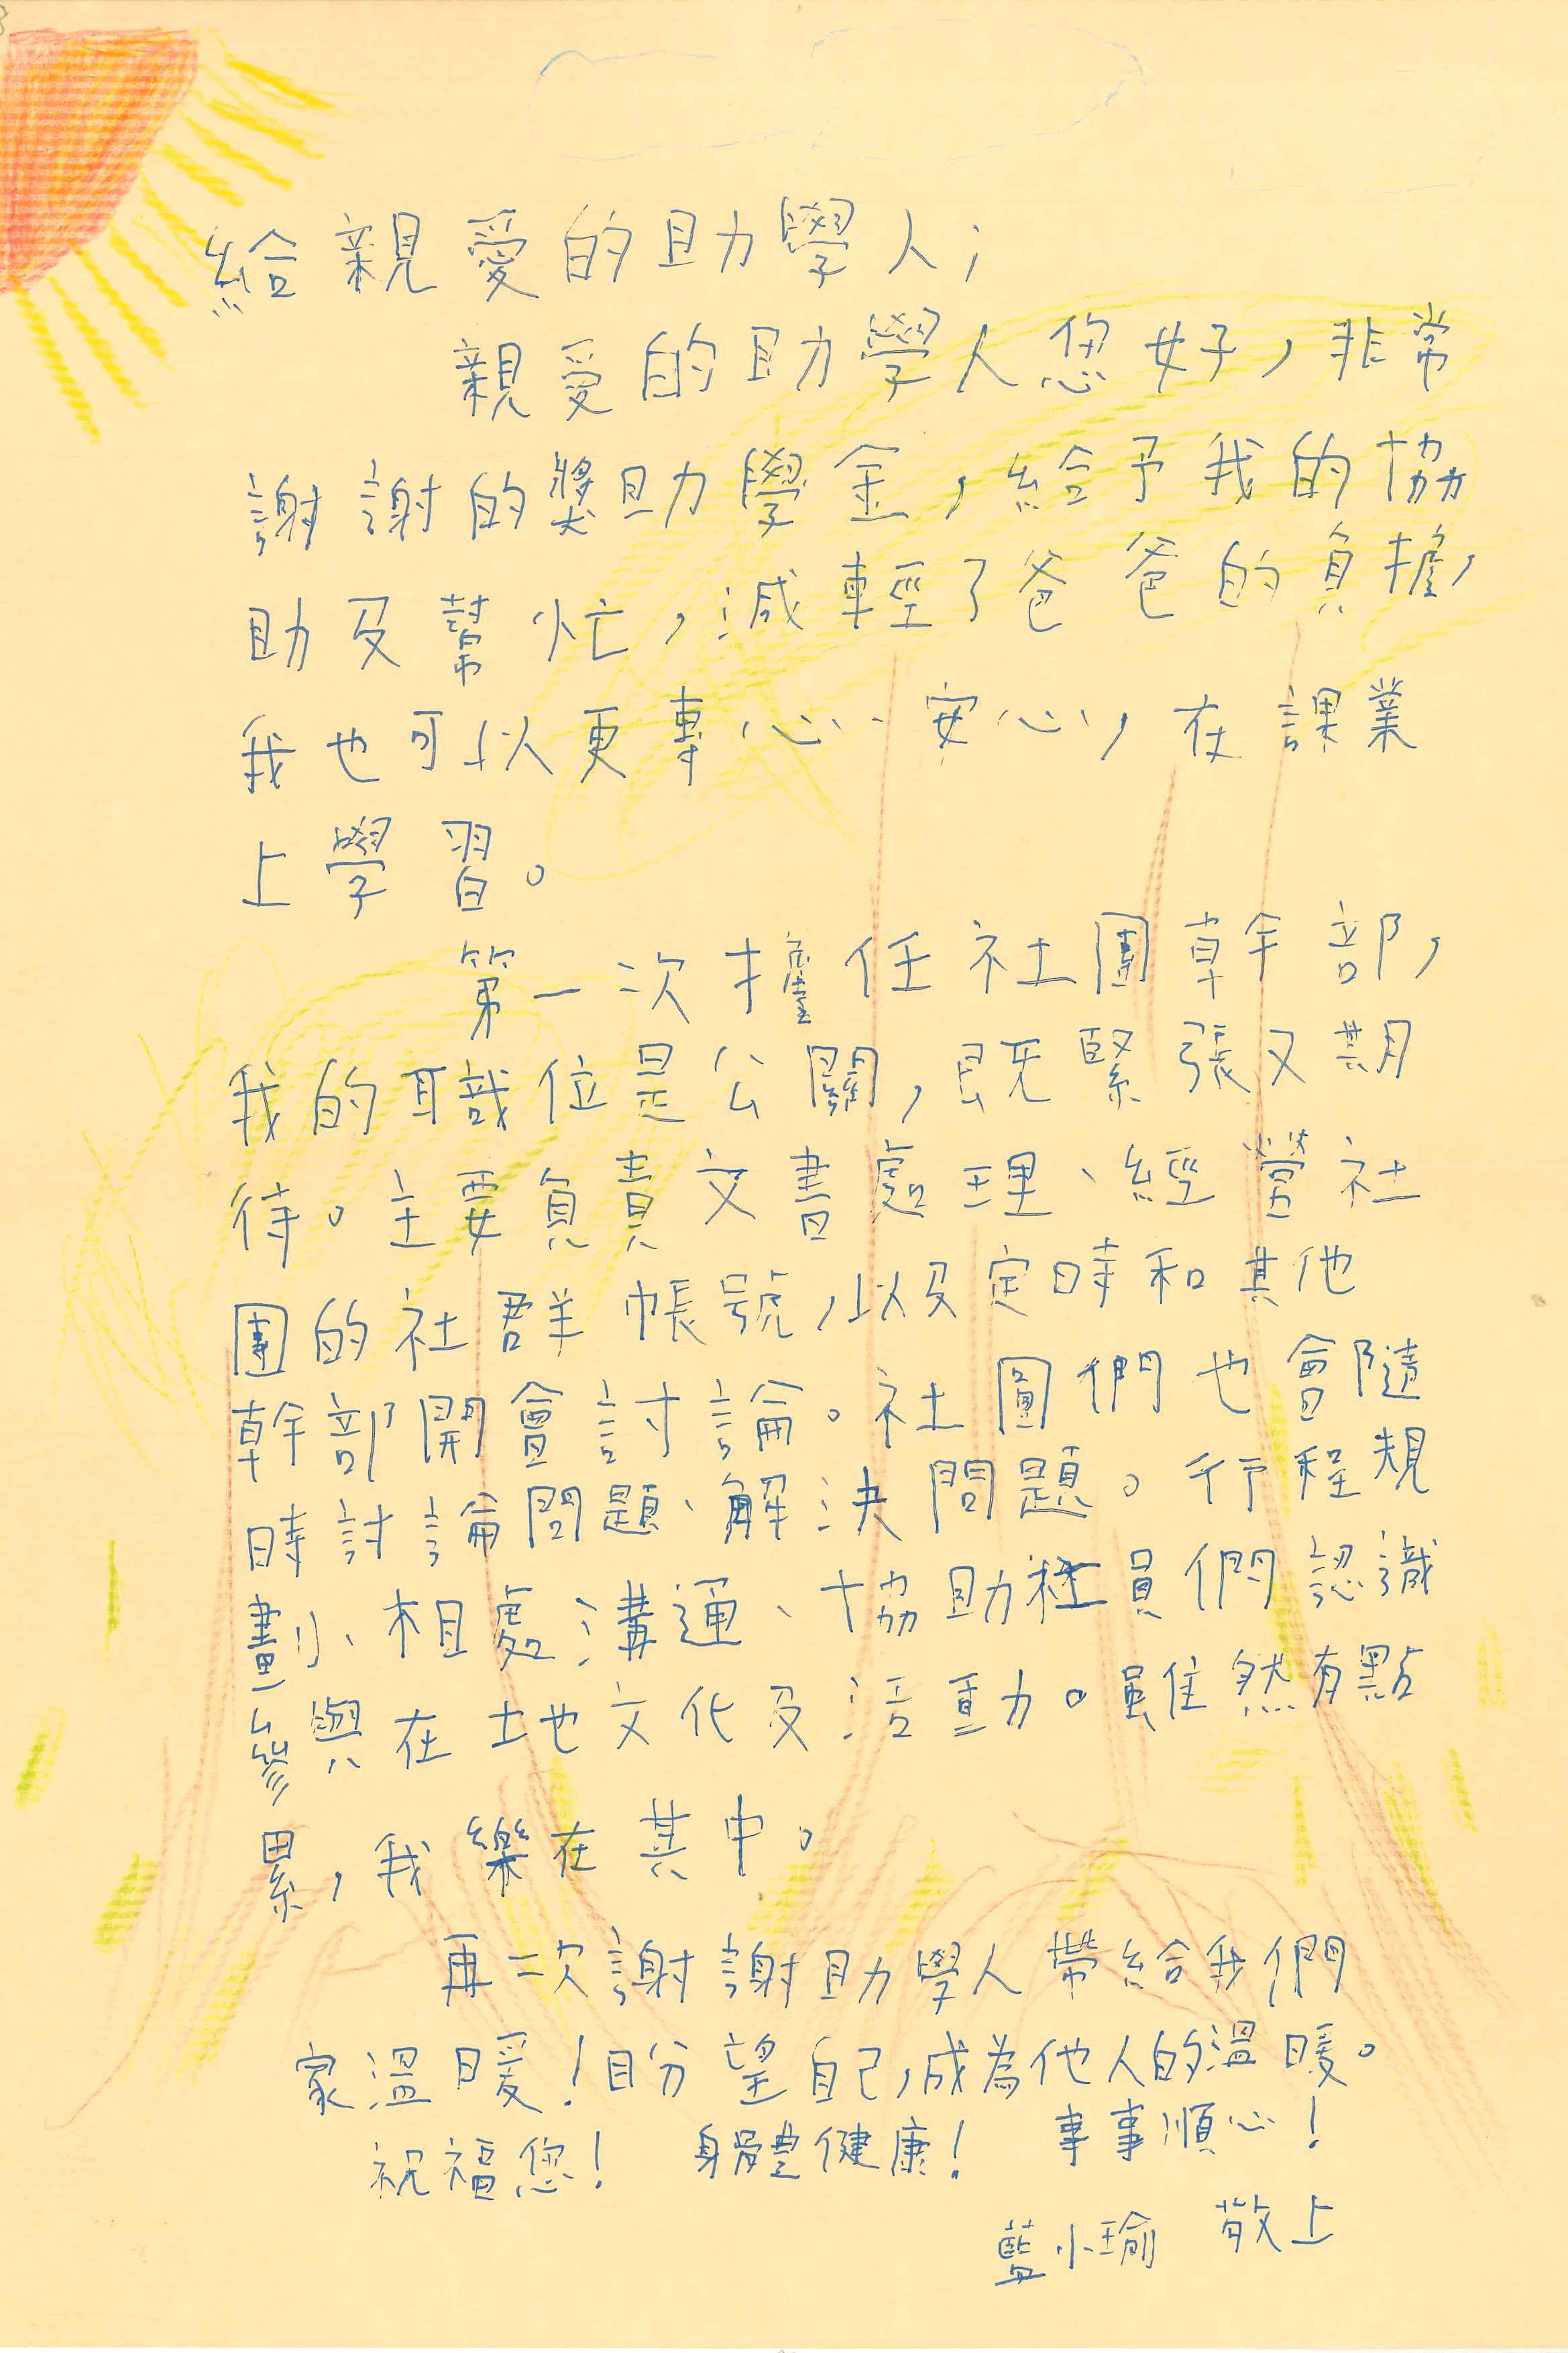 給親愛的助學人；
親愛的助學人您好，非常
謝謝的獎助學金，給予我的協
助及幫忙，減輕了爸爸的負擔，
我也可以更專心、安心，在課業
上學習。
第一次擔任社團幹部，
我的職位是公關，既緊張又期
待。主要負責文書處理、經營社
團的社群帳號，以及定時和其他
幹部開會討論。社團們也會隨
時討論問題、解決問題。行程規
劃、相處溝通、協助社員們認識
參與在地文化及活動。雖然有點
累，我樂在其中。
再一次謝謝助學人帶給我們
家溫暖！盼望自己，成為他人的溫暖。
祝福您！ 身體健康！ 事事順心！
藍小瑜 敬上